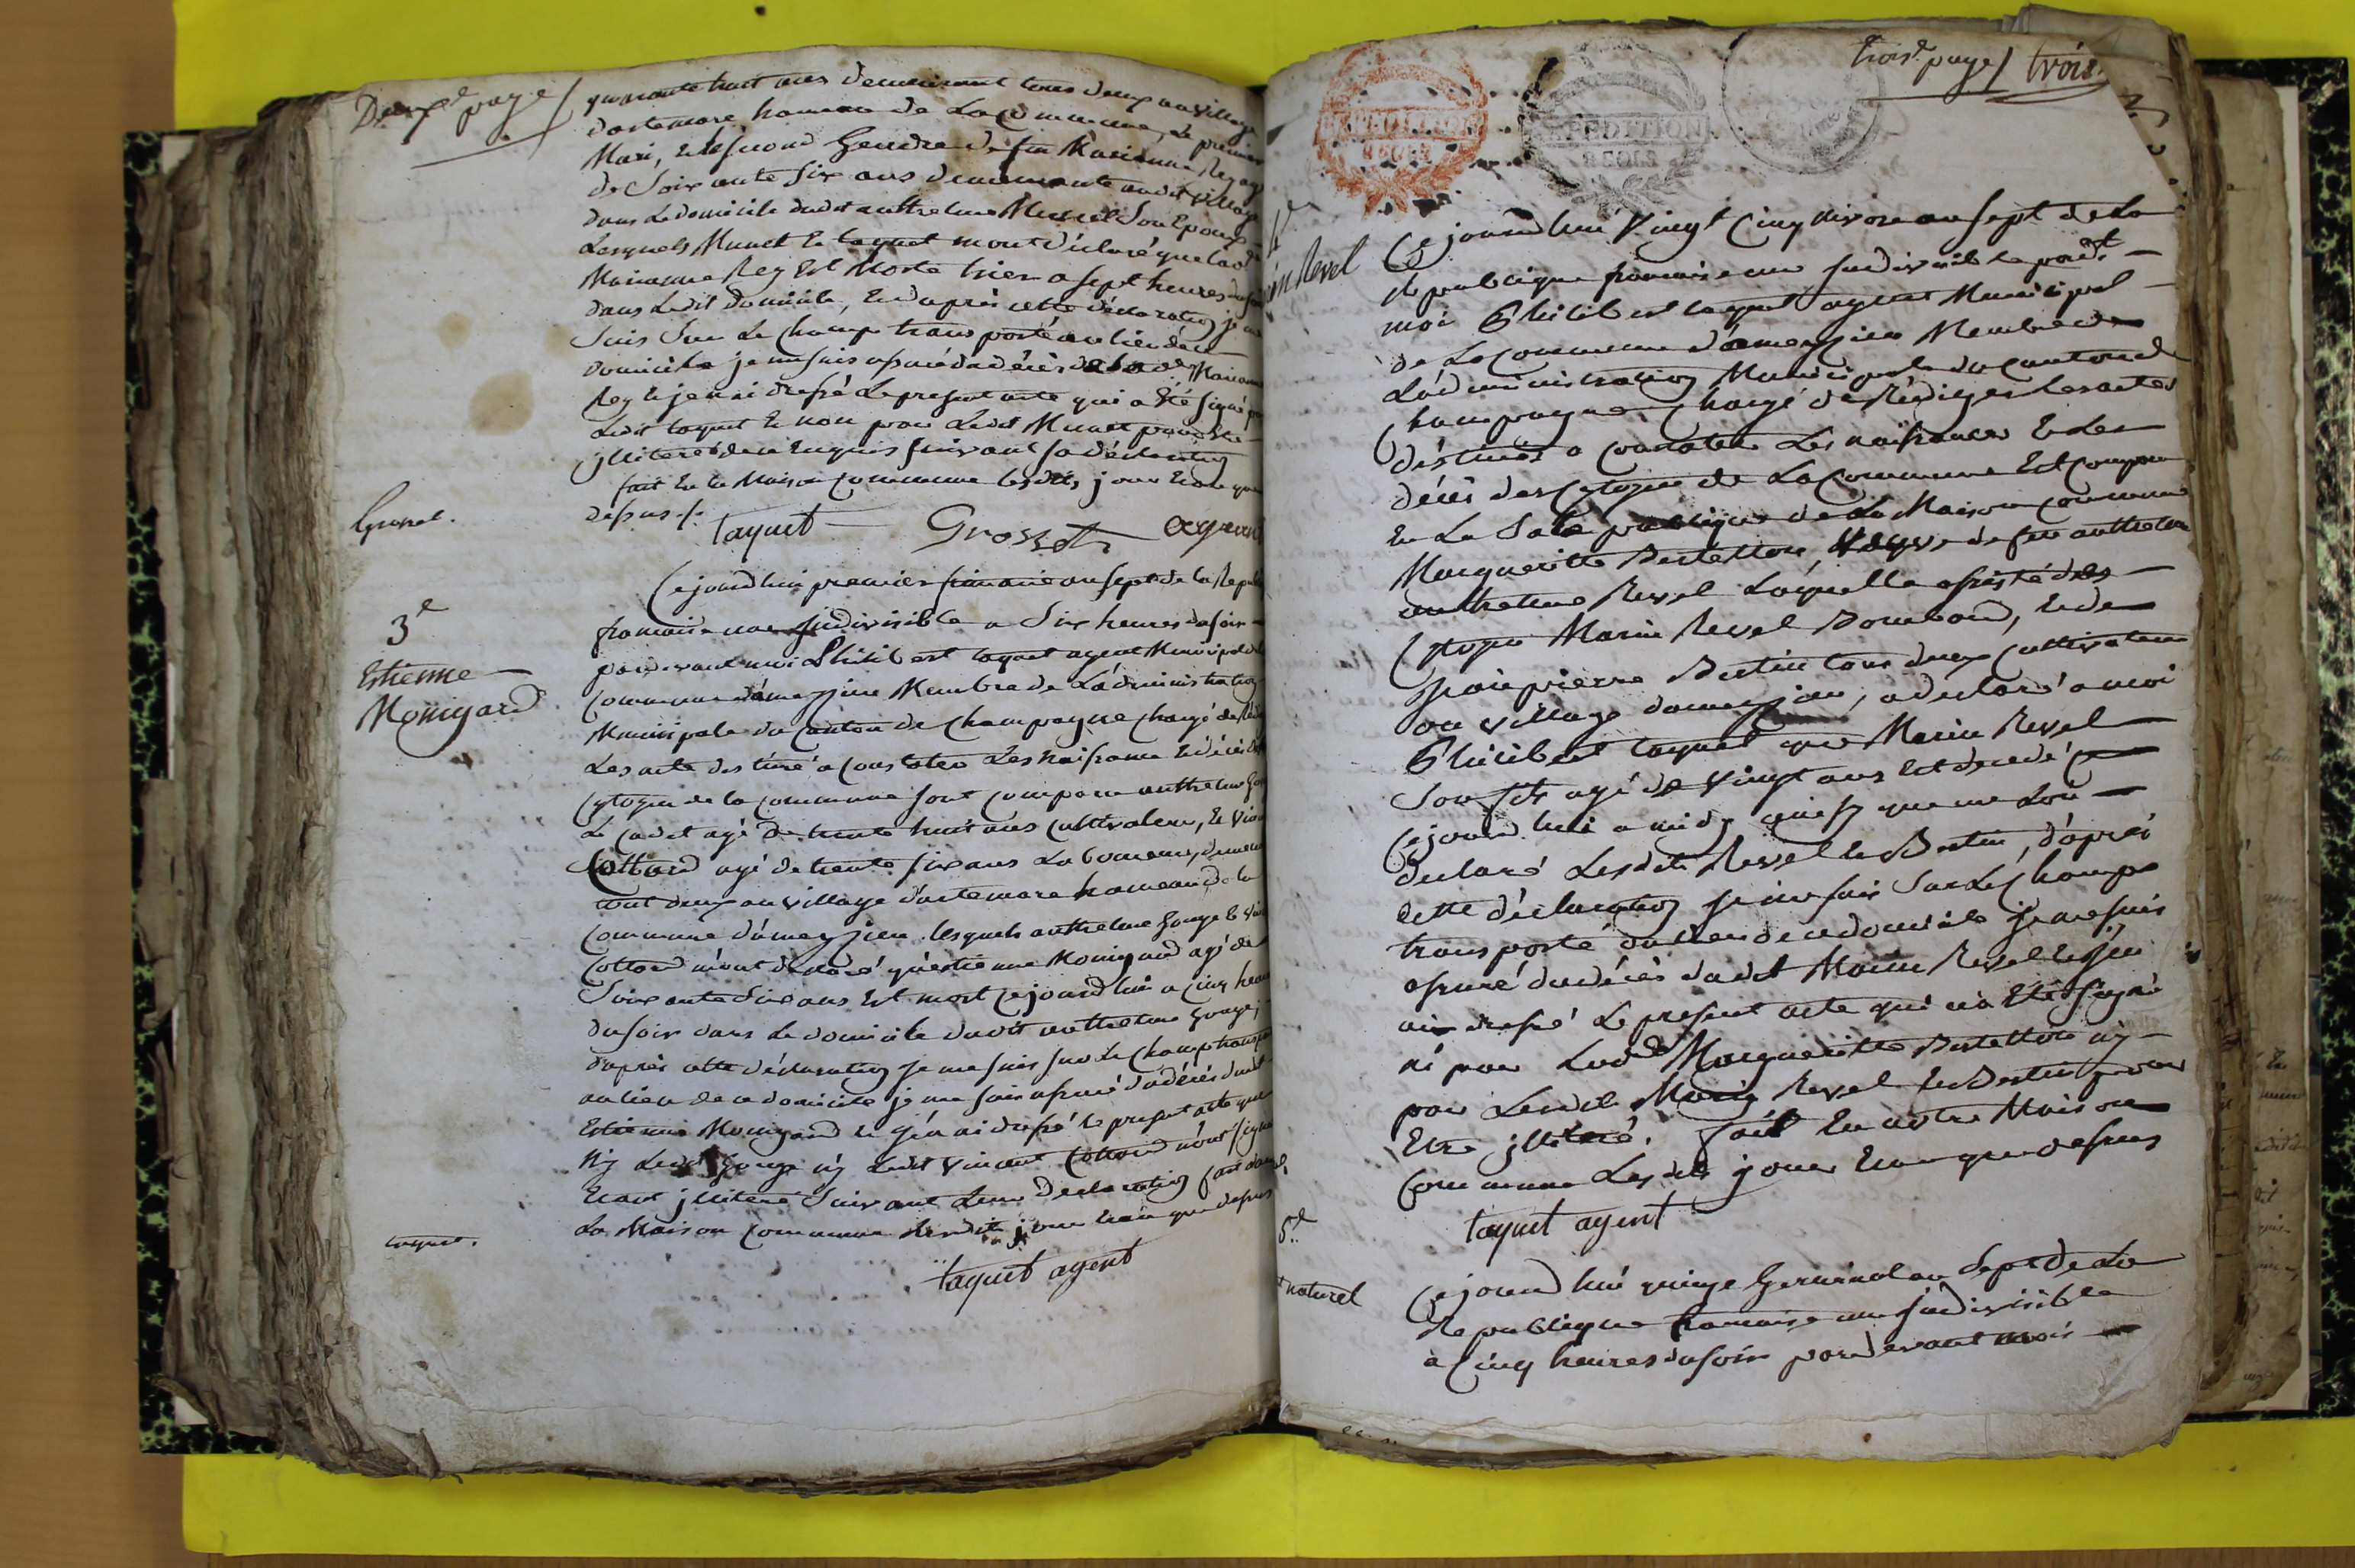 Deuxe page
quarante huit ans demeurant tous deux au village
dartemare hameau de La Commune, Le premier
Mari, et le second Gendre de feu Marianne Rey agé
de Soixante six ans demeurante audit village
dans Le domicile dudit anthelme Munet Son Epoux
Lesquels Munet et taquet mont déclaré que lad
Marianne Rey Est Morte hier a sept heures du soir
dans Ledit domicile, En daprès cette déclaration je me
Suis Sur Le Champ transporté au lieu de ce
domicile je me suis assuré du décès de lade Marianne
Rey et jen ai dressé Le present acte qui a Eté signé par
Ledit taquet Et non par Ledit Munet pour Etre
jlliteré de ce Enquis suivant sa déclaration
fait En la Maison commune lesdits jour Et an que
dessus ./.
Grosset.
taquet Grosset agent
3e
Estienne
Monigard
Cejourdhui premier frimaire an sept de la Repub
francaise une jndivisible a Six heures du soir
pardevant moi Philibert taquet agent Municipal de la
Commune dámeyzieu Membre de Ládministration
Municipale du Canton de Champagne Chargé de Rédi
Les acte destiné a Constater Les Naissance Et décès des
Cytoyen de la Commune sont Comparu anthelme Gouge
Le Cadet agé de trente huit ans Cultivateur, Et Vincent
Cottard agé de trente six ans Laboureur, demeu
tout deux au village dártemare hameau de la
Commune d'ámeyzieu. lesquels anthelme Gouge Et Vin
Cottard mónt déclaré quéstienne Monigard agé de
Soixante Six ans Est mort Cejourdhui a Cinq heures
du soir dans Le domicile dudit anthelme Gouge,
dápres cette déclaration Je me suis sur Le Champ transporté
au lieu de ce domicile je me suis assuré du décès dudit
Estienne Monigard Et Jén ai dressé le present acte que
Ny Ledit Gouge ny Ledit Vincent Cottard nónt signé
Etant jlliteré Suivant Leur Declaration fait dans
La Maison Commune lesdits jour Et an que dessus
taquet.
taquet agent
troise page / trois
EXPEDITION
REGLE
EXPEDITION
REGLE
4e
in Revel
Cejourdhui Vingt Cinq nivose an sept de La
Republique francaise une jndivisible pardt
moi Philibert taquet agent Municipal
de La Commune dámeyzieu Membre de
Ládministration Municipale du Canton de
Champagne Chargé de Rédiger les actes
déstinés a Constater Les naissances Et Les
décès des Cytoyen de La Commune Est Comparu
En La Salle publique de La Maison Commune
Margueritte Berthellon, Veuve de feu anthelme
anthelme Revel Laquelle assisté des
Cytoyen Marin Revel Bombard, Et de
Jean pierre Bertin tous deux Cultivateurs
au village dameyzieu, a declaré a moi
Philibert taquet que Marin Revel
Son fils agé de Vingt ans Est décédé
Cejourdhui a midy ainsy que me Lon
declaré Lesdits Revel Et Bertin, dáprès
Cette déclaration je me suis Sur Le Champ
transporté au Lieu de ce domicile je me suis
assuré du décès dudit Marin Revel Et jen
ai dressé Le present acte qui na Eté signé
ni par Lade Margueritte Berthellon ny
par Lesdits Marin Revel Et Bertin pour
Etre jlliteré. fait En notre Maison
Commune Lesdits jour Et an que dessus
taquet agent
5e
naturel
Cejourdhui quinze Germinal an Sept de La
Republique francaise une jndivisible
a Cinq heures du soir pardevant moi